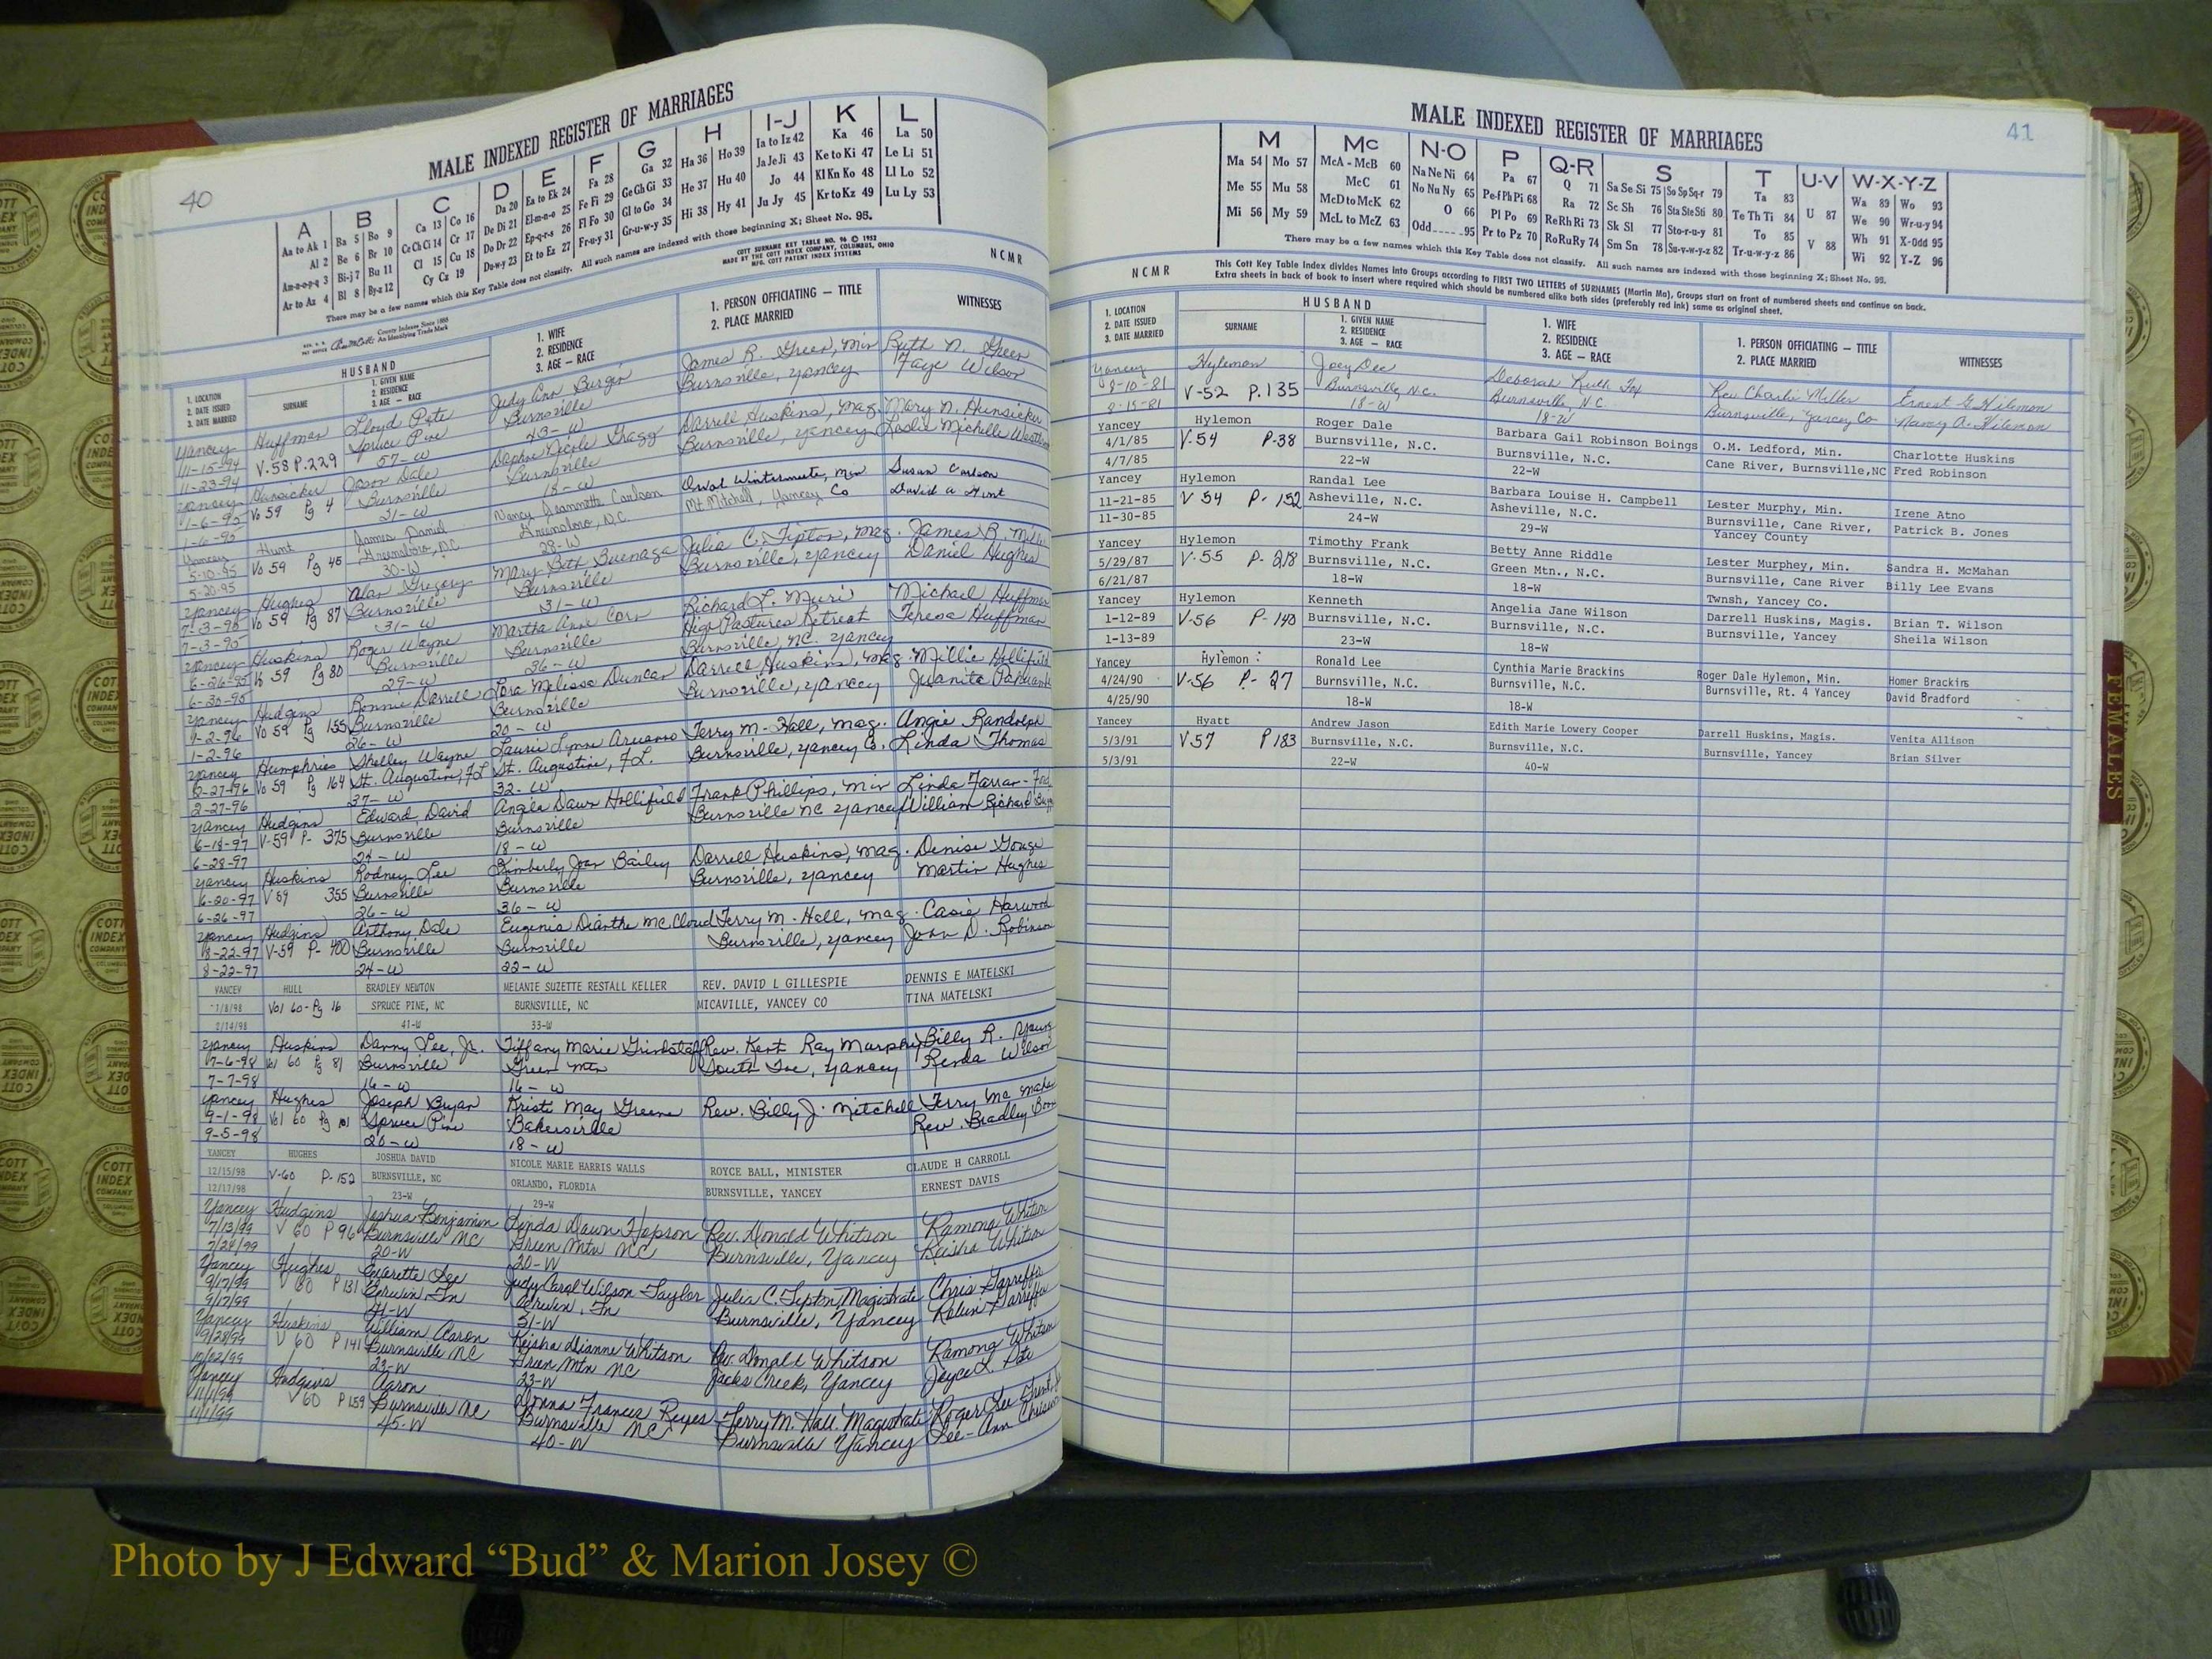 40
MALE INDEXED REGISTER OF MARRIAGES
A
Aa to Ak 1
Al 2
Am-n-o-p-q 3
Ar to Az 4
B
Ba 5 Bo 9
Be 6 Br 10
Bi-j 7 Bu 11
Bl 8 By-z 12
C
Ca 13 Co 16
Ce Ch Ci 14 Cr 17
Cl 15 Cu 18
Cy Cz 19
D
Da 20
De Di 21
Do Dr 22
Du-w-y 23
E
Ea to Ek 24
El-m-n-o 25
Ep-q-r-s 26
Et to Ez 27
F
Fa 28
Fe Fi 29
Fl Fo 30
Fr-u-y 31
G
Ga 32
Ge Gh Gi 33
Gl to Go 34
Gr-u-w-y 35
H
Ha 36 Ho 39
He 37 Hu 40
Hi 38 Hy 41
I-J
Ia to Iz 42
Ja Je Ji 43
Jo 44
Ju Jy 45
K
Ka 46
Ke to Ki 47
Kl Kn Ko 48
Kr to Kz 49
L
La 50
Le Li 51
Ll Lo 52
Lu Ly 53
There may be a few names which this Key Table does not classify. All such names are indexed with those beginning X; Sheet No. 95.
County Indexes Since 1888
An Identifying Trade Mark
COTT SURNAME KEY TABLE NO. 96 © 1952
MADE BY THE COTT INDEX COMPANY, COLUMBUS, OHIO
MFG. COTT PATENT INDEX SYSTEMS
NCMR
1. LOCATION
2. DATE ISSUED
3. DATE MARRIED
HUSBAND
SURNAME
1. GIVEN NAME
2. RESIDENCE
3. AGE — RACE
1. WIFE
2. RESIDENCE
3. AGE — RACE
1. PERSON OFFICIATING — TITLE
2. PLACE MARRIED
WITNESSES
Yancey Huffman Lloyd Pete Judy Ann Burgin James R. Green, Min Ruth N. Green
11-15-94 V.58 P.229 Spruce Pine Burnsville Burnsville, Yancey Faye Wilson
11-23-94 57-W 43-W
Yancey Hunsicker Jason Dale Daphne Nicole Gragg Darrell Huskins, Mag. Mary N. Hunsicker
1-6-95 Vo 59 Pg 4 Burnsville Burnsville Burnsville, Yancey Leslie Michelle
1-6-95 21-W 18-W
Yancey Hunt James Daniel Nancy Jeannette Carlson Orval Wintermute, Min Susan Carlson
5-10-95 Vo 59 Pg 45 Greensboro, N.C. Greensboro, N.C. Mt. Mitchell, Yancey Co David A Hunt
5-20-95 30-W 28-W
Yancey Hughes Alan Gregory Mary Beth Buenaga Julia C. Tipton, Mag. James B.
7-3-95 Vo 59 Pg 87 Burnsville Burnsville Burnsville, Yancey Daniel Hughes
7-3-95 31-W 31-W
Yancey Huskins Roger Wayne Martha Anne Corn Richard L. Muri Michael Huffman
6-26-95 Vo 59 Pg 80 Burnsville Burnsville High Pastures Retreat Teresa Huffman
6-30-95 29-W 26-W Burnsville, NC. Yancey
Yancey Hudgins Ronnie Darrell Lora Melissa Duncan Darrell Huskins, Mag. Millie Hollifield
1-2-96 Vo 59 Pg 155 Burnsville Burnsville Burnsville, Yancey Juanita
1-2-96 26-W 20-W
Yancey Humphries Shelley Wayne Laurie Lynn Terry M. Hall, Mag. Angie Randolph
2-27-96 Vo 59 Pg 164 St. Augustine, FL St. Augustine, FL. Burnsville, Yancey Co. Linda Thomas
2-27-96 37-W 32-W
Yancey Hudgins Edward David Angela Dawn Hollifield Frank Phillips, Min Linda Farrar-
6-18-97 V-59 P- 375 Burnsville Burnsville Burnsville NC Yancey William Richard
6-28-97 24-W 18-W
Yancey Huskins Rodney Lee Kimberly Joan Bailey Darrell Huskins, Mag. Denise Gouge
6-20-97 V 59 355 Burnsville Burnsville Burnsville, Yancey Martin Hughes
6-26-97 26-W 36-W
Yancey Hudgins Anthony Dale Eugenia Dianthe McCloud Terry M. Hall, Mag. Casie Harwood
8-22-97 V-59 P- 400 Burnsville Burnsville Burnsville, Yancey John D. Robinson
8-22-97 24-W 22-W
YANCEY HULL BRADLEY NEWTON MELANIE SUZETTE RESTALL KELLER REV. DAVID L GILLESPIE DENNIS E MATELSKI
1/8/98 Vol 60- Pg 16 SPRUCE PINE, NC BURNSVILLE, NC MICAVILLE, YANCEY CO TINA MATELSKI
2/14/98 41-W 33-W
Yancey Huskins Danny Lee, Jr. Tiffany Marie Grindstaff Rev. Kent Ray Murphy Billy R. Young
7-6-98 Vol 60 Pg 81 Burnsville Green Mtn South Toe, Yancey Renda Wilson
7-7-98 16-W 16-W
Yancey Hughes Joseph Bryan Kristi May Greene Rev. Billy J. Mitchell Terry
9-1-98 Vol 60 Pg 101 Spruce Pine Bakersville Rev. Bradley
9-5-98 20-W 18-W
YANCEY HUGHES JOSHUA DAVID NICOLE MARIE HARRIS WALLS ROYCE BALL, MINISTER CLAUDE H CARROLL
12/15/98 V-60 P-152 BURNSVILLE, NC ORLANDO, FLORDIA BURNSVILLE, YANCEY ERNEST DAVIS
12/17/98 23-W 29-W
Yancey Hudgins Joshua Benjamin Linda Dawn Hopson Rev. Donald Whitson Ramona Whitson
7/13/99 V 60 P 96 Burnsville NC Green Mtn NC Burnsville, Yancey Keisha Whitson
7/24/99 20-W 20-W
Yancey Hughes Everette Lee Judy Carol Wilson Taylor Julia C. Tipton, Magistrate Chris
9/17/99 V 60 P 131 Erwin, Tn Erwin, Tn Burnsville, Yancey Robin
9/17/99 41-W 31-W
Yancey Huskins William Aaron Keisha Dianne Whitson Rev. Donald Whitson Ramona Whitson
9/28/99 V 60 P 141 Burnsville NC Green Mtn NC Jacks Creek, Yancey Joyce L.
10/02/99 23-W 23-W
Yancey Hudgins Aaron Donna Frances Reyes Terry M. Hall, Magistrate Roger Lee
11/1/99 V 60 P 159 Burnsville NC Burnsville NC Burnsville Yancey Lee-Ann
11/1/99 45-W 40-W
41
MALE INDEXED REGISTER OF MARRIAGES
M
Ma 54 Mo 57
Me 55 Mu 58
Mi 56 My 59
Mc
McA - McB 60
McC 61
McD to McK 62
McL to McZ 63
N-O
Na Ne Ni 64
No Nu Ny 65
O 66
Odd 95
P
Pa 67
Pe-f Ph Pi 68
Pl Po 69
Pr to Pz 70
Q-R
Q 71
Ra 72
Re Rh Ri 73
Ro Ru Ry 74
S
Sa Se Si 75 So Sp Sq-r 79
Sc Sh 76 Sta Ste Sti 80
Sk Sl 77 Sto-r-u-y 81
Sm Sn 78 Su-v-w-y-z 82
T
Ta 83
Te Th Ti 84
To 85
Tr-u-w-y-z 86
U-V
U 87
V 88
W-X-Y-Z
Wa 89 Wo 93
We 90 Wr-u-y 94
Wh 91 X-Odd 95
Wi 92 Y-Z 96
There may be a few names which this Key Table does not classify. All such names are indexed with those beginning X; Sheet No. 95.
NCMR
This Cott Key Table Index divides Names into Groups according to FIRST TWO LETTERS of SURNAMES (Martin Ma), Groups start on front of numbered sheets and continue on back.
Extra sheets in back of book to insert where required which should be numbered alike both sides (preferably red ink) same as original sheet.
1. LOCATION
2. DATE ISSUED
3. DATE MARRIED
HUSBAND
SURNAME
1. GIVEN NAME
2. RESIDENCE
3. AGE — RACE
1. WIFE
2. RESIDENCE
3. AGE — RACE
1. PERSON OFFICIATING — TITLE
2. PLACE MARRIED
WITNESSES
Yancey Hylemon Joey Dee Deborah Ruth Fox Rev Charlie Miller Ernest G Hilemon
8-10-81 V-52 P.135 Burnsville, N.C. Burnsville, N.C. Burnsville, Yancey Co Nancy A. Hilemon
8-15-81 18-W 18-W
Yancey Hylemon Roger Dale Barbara Gail Robinson Boings O.M. Ledford, Min. Charlotte Huskins
4/1/85 V.54 P-38 Burnsville, N.C. Burnsville, N.C. Cane River, Burnsville,NC Fred Robinson
4/7/85 22-W 22-W
Yancey Hylemon Randal Lee Barbara Louise H. Campbell Lester Murphy, Min. Irene Atno
11-21-85 V 54 P- 152 Asheville, N.C. Asheville, N.C. Burnsville, Cane River, Patrick B. Jones
11-30-85 24-W 29-W Yancey County
Yancey Hylemon Timothy Frank Betty Anne Riddle Lester Murphey, Min. Sandra H. McMahan
5/29/87 V-55 P- 218 Burnsville, N.C. Green Mtn., N.C. Burnsville, Cane River Billy Lee Evans
6/21/87 18-W 18-W Twnsh, Yancey Co.
Yancey Hylemon Kenneth Angelia Jane Wilson Darrell Huskins, Magis. Brian T. Wilson
1-12-89 V-56 P-140 Burnsville, N.C. Burnsville, N.C. Burnsville, Yancey Sheila Wilson
1-13-89 23-W 18-W
Yancey Hylemon Ronald Lee Cynthia Marie Brackins Roger Dale Hylemon, Min. Homer Brackins
4/24/90 V-56 P-27 Burnsville, N.C. Burnsville, N.C. Burnsville, Rt. 4 Yancey David Bradford
4/25/90 18-W 18-W
Yancey Hyatt Andrew Jason Edith Marie Lowery Cooper Darrell Huskins, Magis. Venita Allison
5/3/91 V57 P183 Burnsville, N.C. Burnsville, N.C. Burnsville, Yancey Brian Silver
5/3/91 22-W 40-W
FEMALES
Photo by J Edward “Bud” & Marion Josey ©